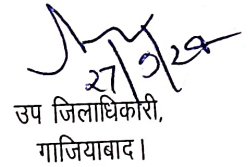 27/9/24
उप जिलाधिकारी,
गाजियाबाद।